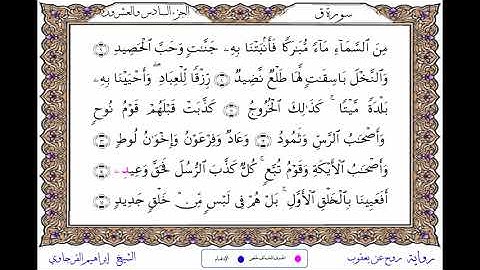 سورة ق
الجزء السادس والعشرون
مِنَ ٱلسَّمَآءِ مَآءً مُّبَٰرَكًا فَأَنۢبَتْنَا بِهِۦ جَنَّٰتٍ وَحَبَّ ٱلْحَصِيدِ
وَٱلنَّخْلَ بَاسِقَٰتٍ لَّهَا طَلْعٌ نَّضِيدٌ رِّزْقًا لِّلْعِبَادِ ۖ وَأَحْيَيْنَا بِهِۦ
بَلْدَةً مَّيْتًا ۚ كَذَٰلِكَ ٱلْخُرُوجُ كَذَّبَتْ قَبْلَهُمْ قَوْمُ نُوحٍ
وَأَصْحَٰبُ ٱلرَّسِّ وَثَمُودُ وَعَادٌ وَفِرْعَوْنُ وَإِخْوَٰنُ لُوطٍ
وَأَصْحَٰبُ ٱلْأَيْكَةِ وَقَوْمُ تُبَّعٍ ۚ كُلٌّ كَذَّبَ ٱلرُّسُلَ فَحَقَّ وَعِيدِۦ
أَفَعَيِينَا بِٱلْخَلْقِ ٱلْأَوَّلِ ۚ بَلْ هُمْ فِى لَبْسٍ مِّنْ خَلْقٍ جَدِيدٍ
رواية: روح عن يعقوب
الإدغام
الشيخ إبراهيم الفرجاوي